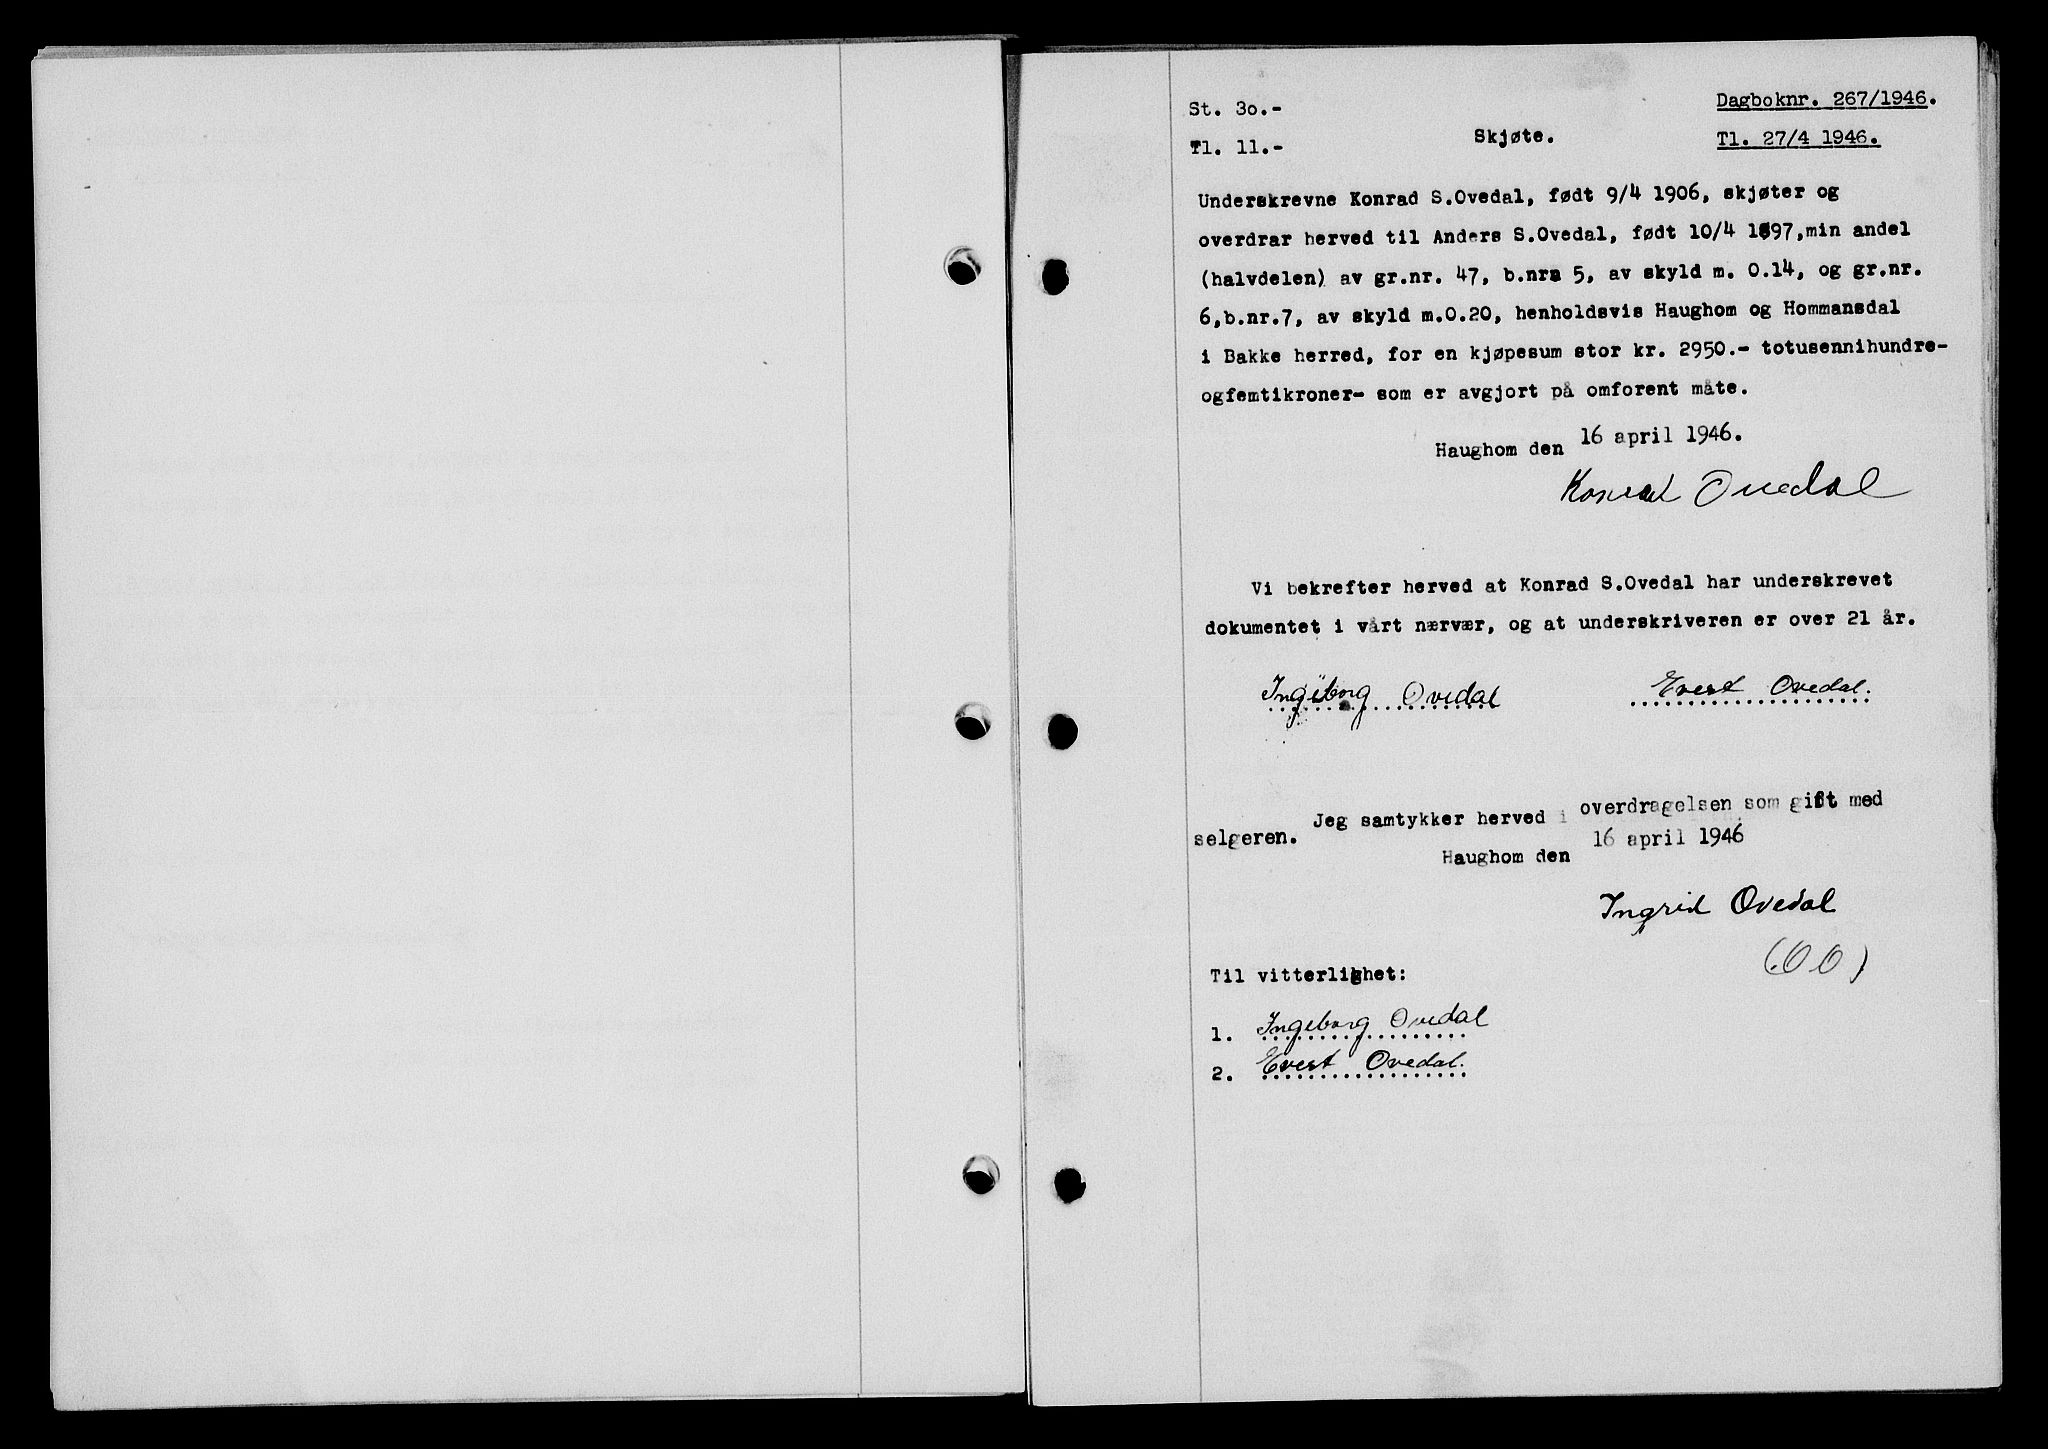 St. 3o.-
Dagboknr. 267/1946.
Tl. 11.-
Skjøte.
Tl. 27/4 1946.
Underskrevne Konrad S.Ovedal, født 9/4 1906, skjøter og
overdrar herved til Anders S.Ovedal, født 10/4 1897,min andel
(halvdelen) av gr.nr. 47, b.nrs 5, av skyld m. 0.14, og gr.nr.
6,b.nr.7, av skyld m.0.20, henholdsvis Haughom og Hommansdal
i Bakke herred, for en kjøpesum stor kr. 2950.- totusennihundre-
ogfemtikroner- som er avgjort på omforent måte.
Haughom den 16 april 1946.
Konrad Ovedal
Vi bekrefter herved at Konrad S.Ovedal har underskrevet
dokumentet i vårt nærvær, og at underskriveren er over 21 år.
Ingeborg Ovedal
Evert Ovedal.
Jeg samtykker herved i overdragelsen som gift med
selgeren.
Haughom den 16 april 1946
Ingrid Ovedal
(O O)
Til vitterlighet:
1. Ingeborg Ovedal
2. Evert Ovedal.